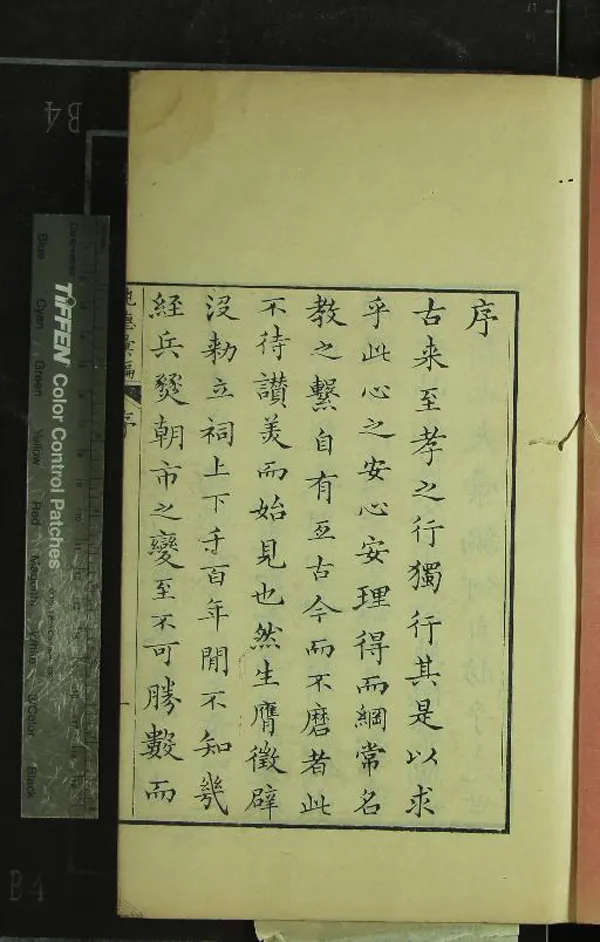 序
古来至孝之行獨行其是以求
乎此心之安心安理得而綱常名
教之繫自有亙古今而不磨者此
不待讃美而始見也然生膺徵辟
沒勅立祠上下千百年閒不知幾
經兵燹朝市之變至不可勝數而
德彙編
序
TIFFEN Color Control Patches
Blue Cyan Green Yellow Red Magenta White 3/Color Black
B4
B4